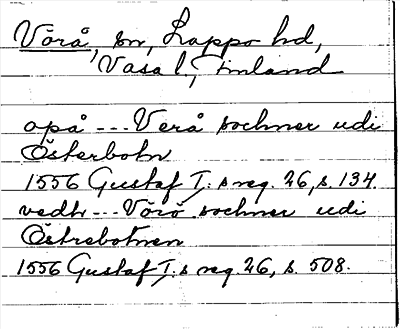 Vörå, sn, Lappo hd,
Vasa l., Finland
opå --- Verå sochner udi
Österbotn
1556 Gustaf I:s reg. 26, s. 134.
vedh --- Vörö sochner udi
Östrebotnen
1556 Gustaf I:s reg. 26, s. 508.